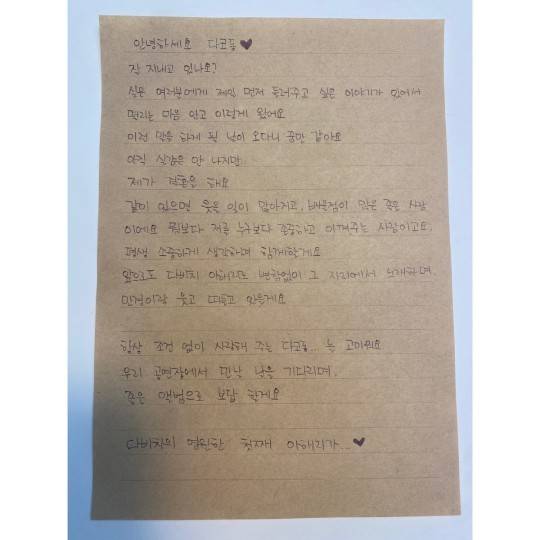 안녕하세요 다코롱♥
잘 지내고 있나요?
실은 여러분에게 제일 먼저 들려주고 싶은 이야기가 있어서
떨리는 마음 안고 이렇게 왔어요
이런 말을 하게 될 날이 오다니 꿈만 같아요
아직 실감은 안 나지만
제가 결혼을 해요
같이 있으면 웃을 일이 많아지고, 배울점이 많은 좋은 사람
이에요 뭐보다 저를 누구보다 존중하고 아껴주는 사람이고요.
평생 소중하게 생각하며 함께할게요
앞으로도 다비치 이해리는 변함없이 그 자리에서 노래하며,
민경이랑 웃고 떠들고 있을게요
항상 조건 없이 사랑해 주는 다코롱... 늘 고마워요
우리 공연장에서 만날 날을 기다리며,
좋은 앨범으로 보답 할게요
다비치의 영원한 첫째 이해리가...♥